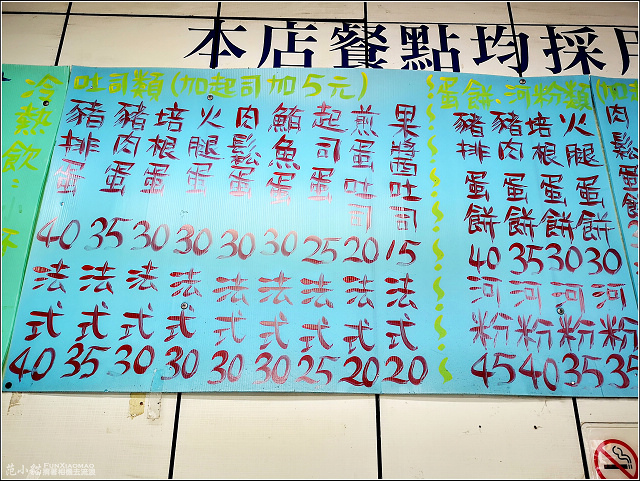 本店餐點均採用
冷熱飲：
吐司類(加起司加5元)
豬排蛋 40
豬肉蛋 35
培根蛋 30
火腿蛋 30
肉鬆蛋 30
鮪魚蛋 30
起司蛋 25
煎蛋吐司 20
果醬吐司 15
法式 40
法式 35
法式 30
法式 30
法式 30
法式 30
法式 25
法式 20
法式 20
蛋餅、河粉類(加
豬排蛋餅 40
豬肉蛋餅 35
培根蛋餅 30
火腿蛋餅 30
肉鬆蛋餅
河粉 45
河粉 40
河粉 35
河粉 35
范小貓 FUNXIAOMAO